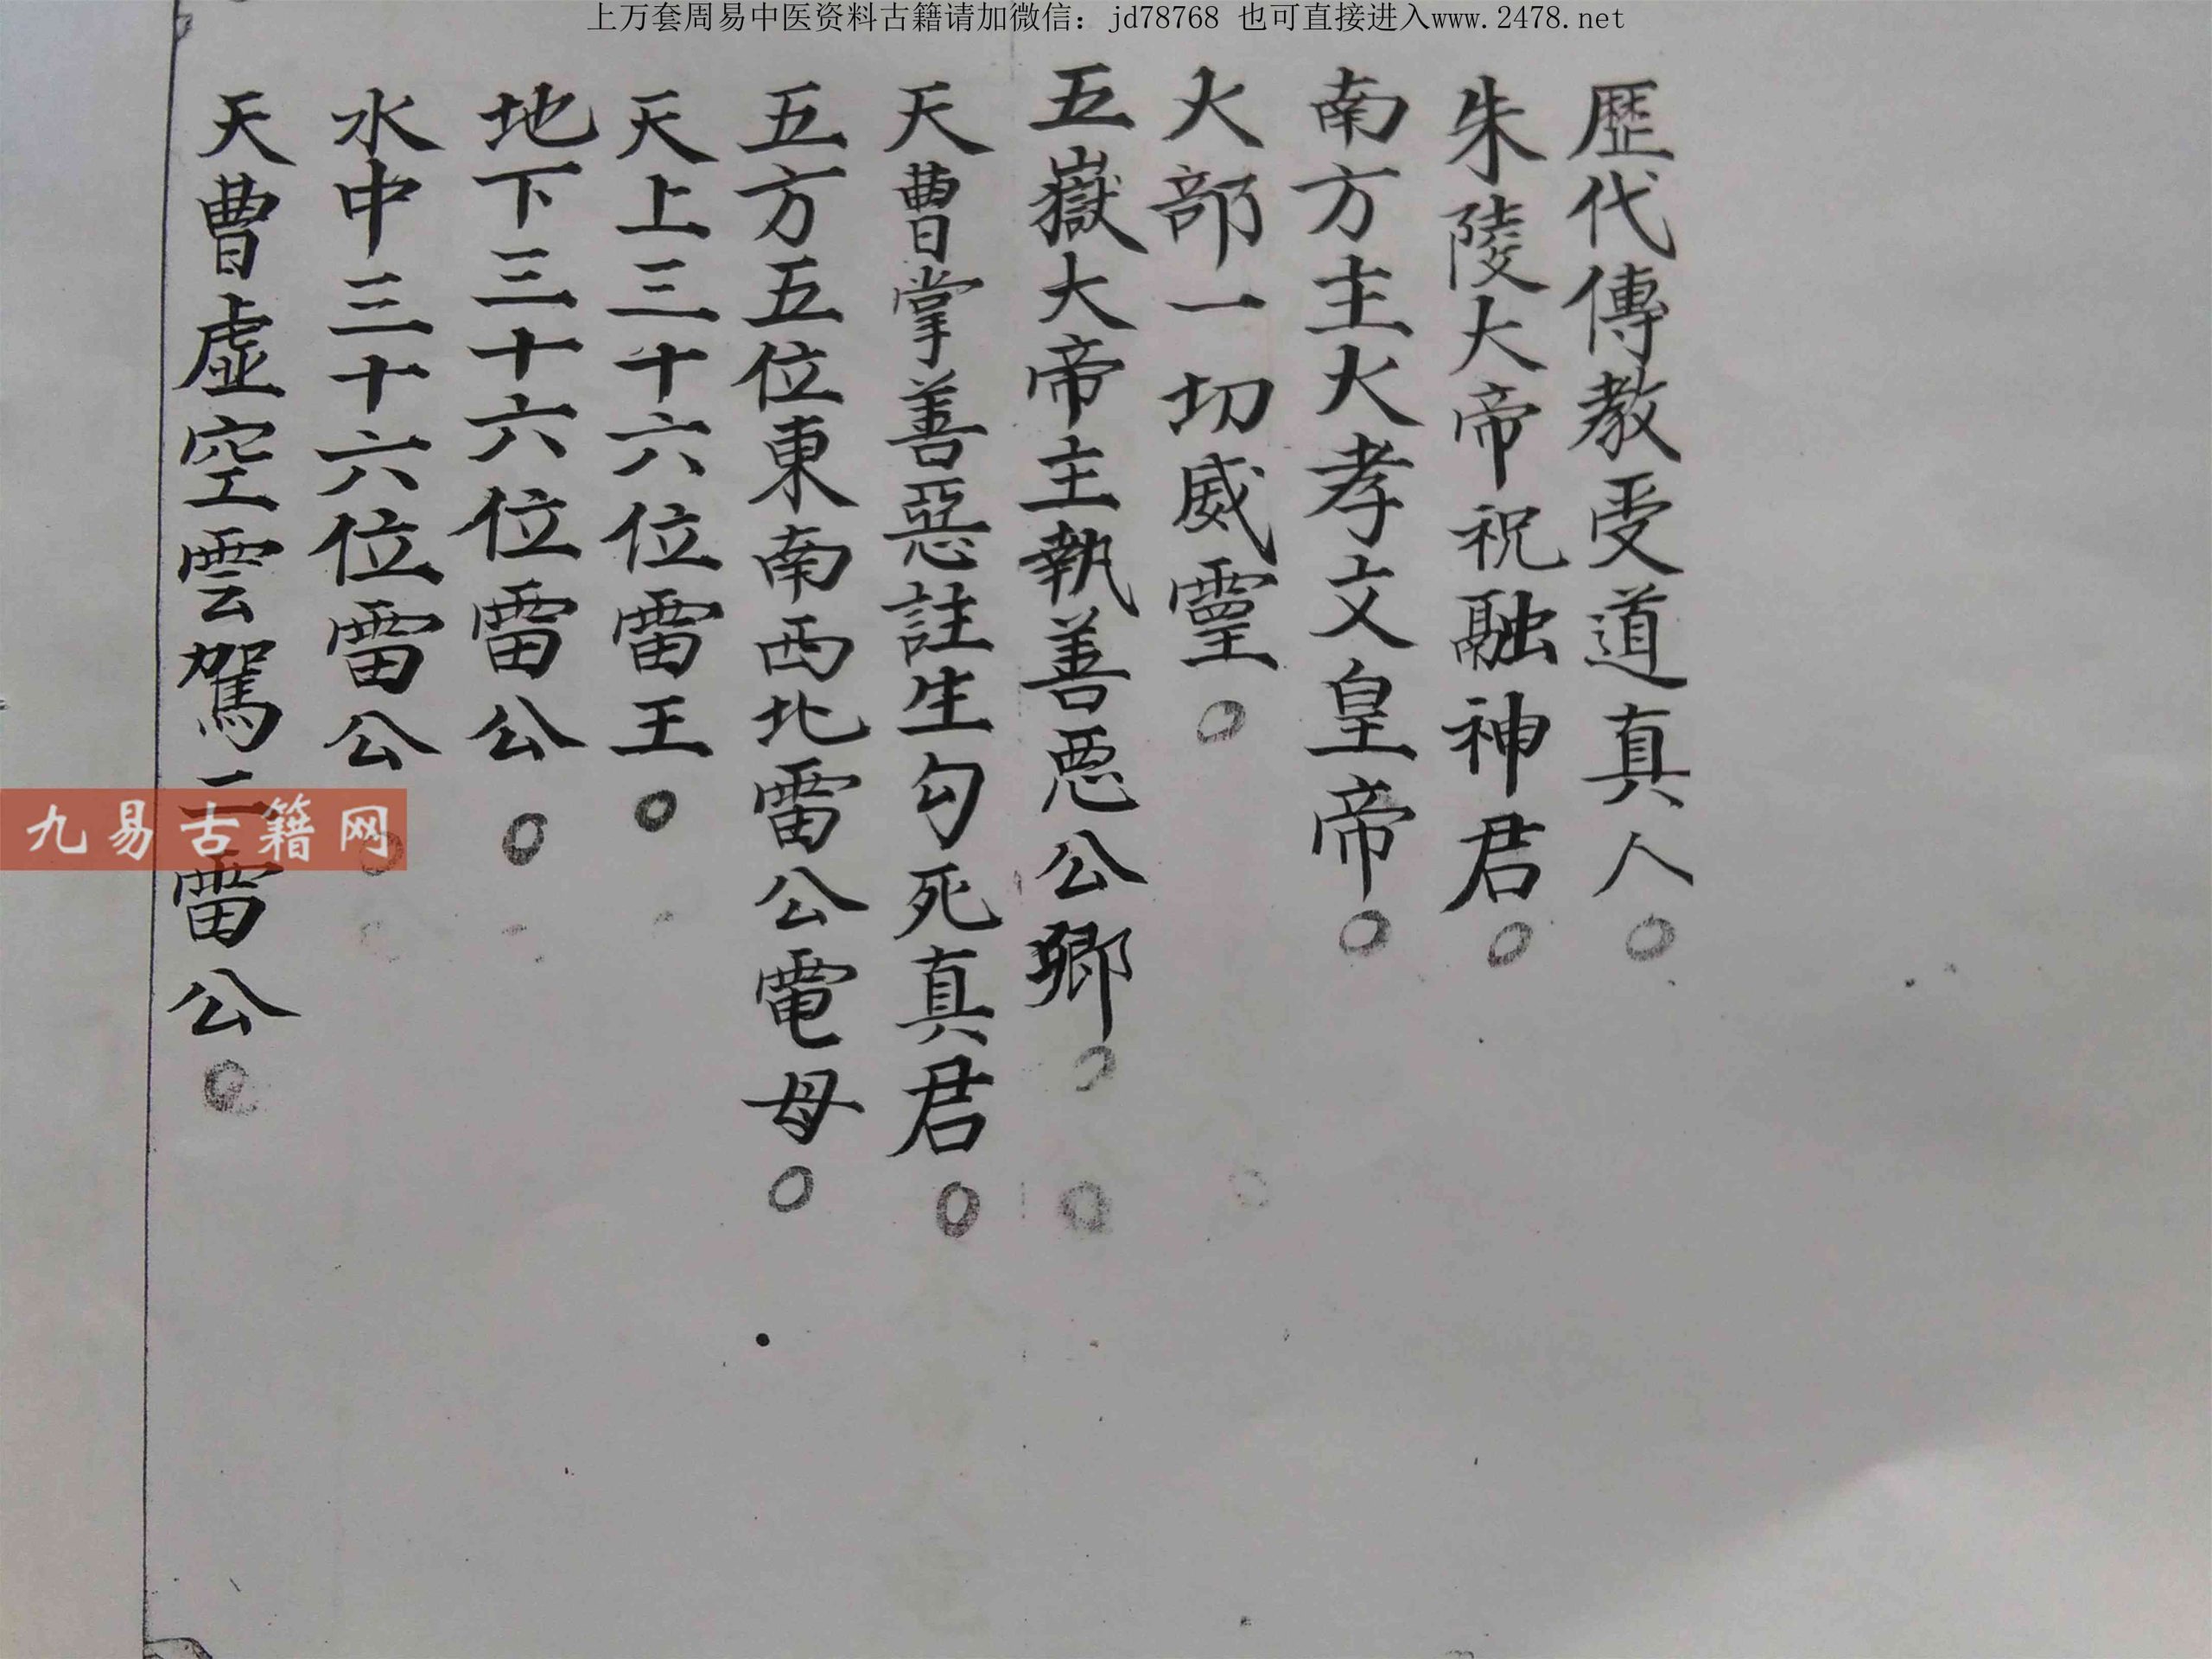 上万套周易中医资料古籍请加微信：jd78768 也可直接进入www.2478.net
歷代傳教受道真人○
朱陵大帝祝融神君○
南方主火孝文皇帝○
火部一切威靈○
五嶽大帝主執善惡公卿○
天曹掌善惡註生勾死真君○
五方五位東南西北雷公電母○
天上三十六位雷王○
地下三十六位雷公○
水中三十六位雷公○
天曹虛空雲駕二雷公○
九易古籍网